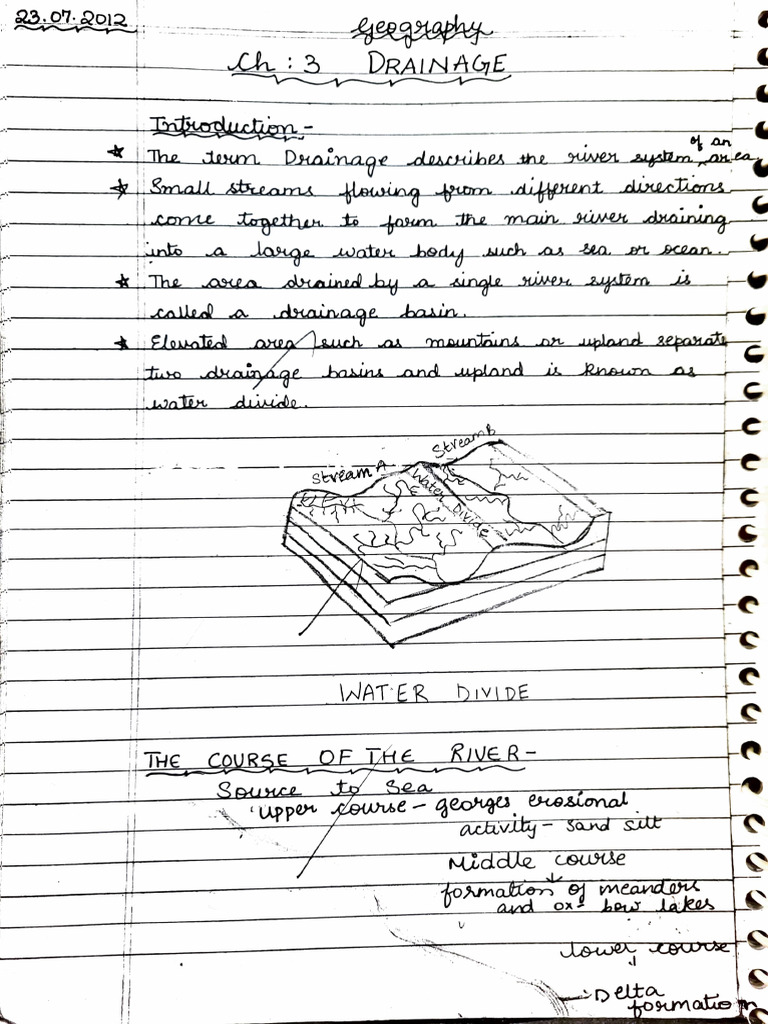 23.07.2012
Geography
Ch : 3 DRAINAGE
Introduction -
★ The term Drainage describes the river system of an area
★ Small streams flowing from different directions
come together to form the main river draining
into a large water body such as sea or ocean.
★ The area drained by a single river system is
called a drainage basin.
★ Elevated area such as mountains or upland separate
two drainage basins and upland is known as
water divide.
Stream A
Stream B
Water Divide
WATER DIVIDE
THE COURSE OF THE RIVER -
Source to Sea
Upper course - georges erosional
activity - sand silt
Middle course
↓
formation of meanders
and ox-bow lakes
lower course
↓
Delta
formation